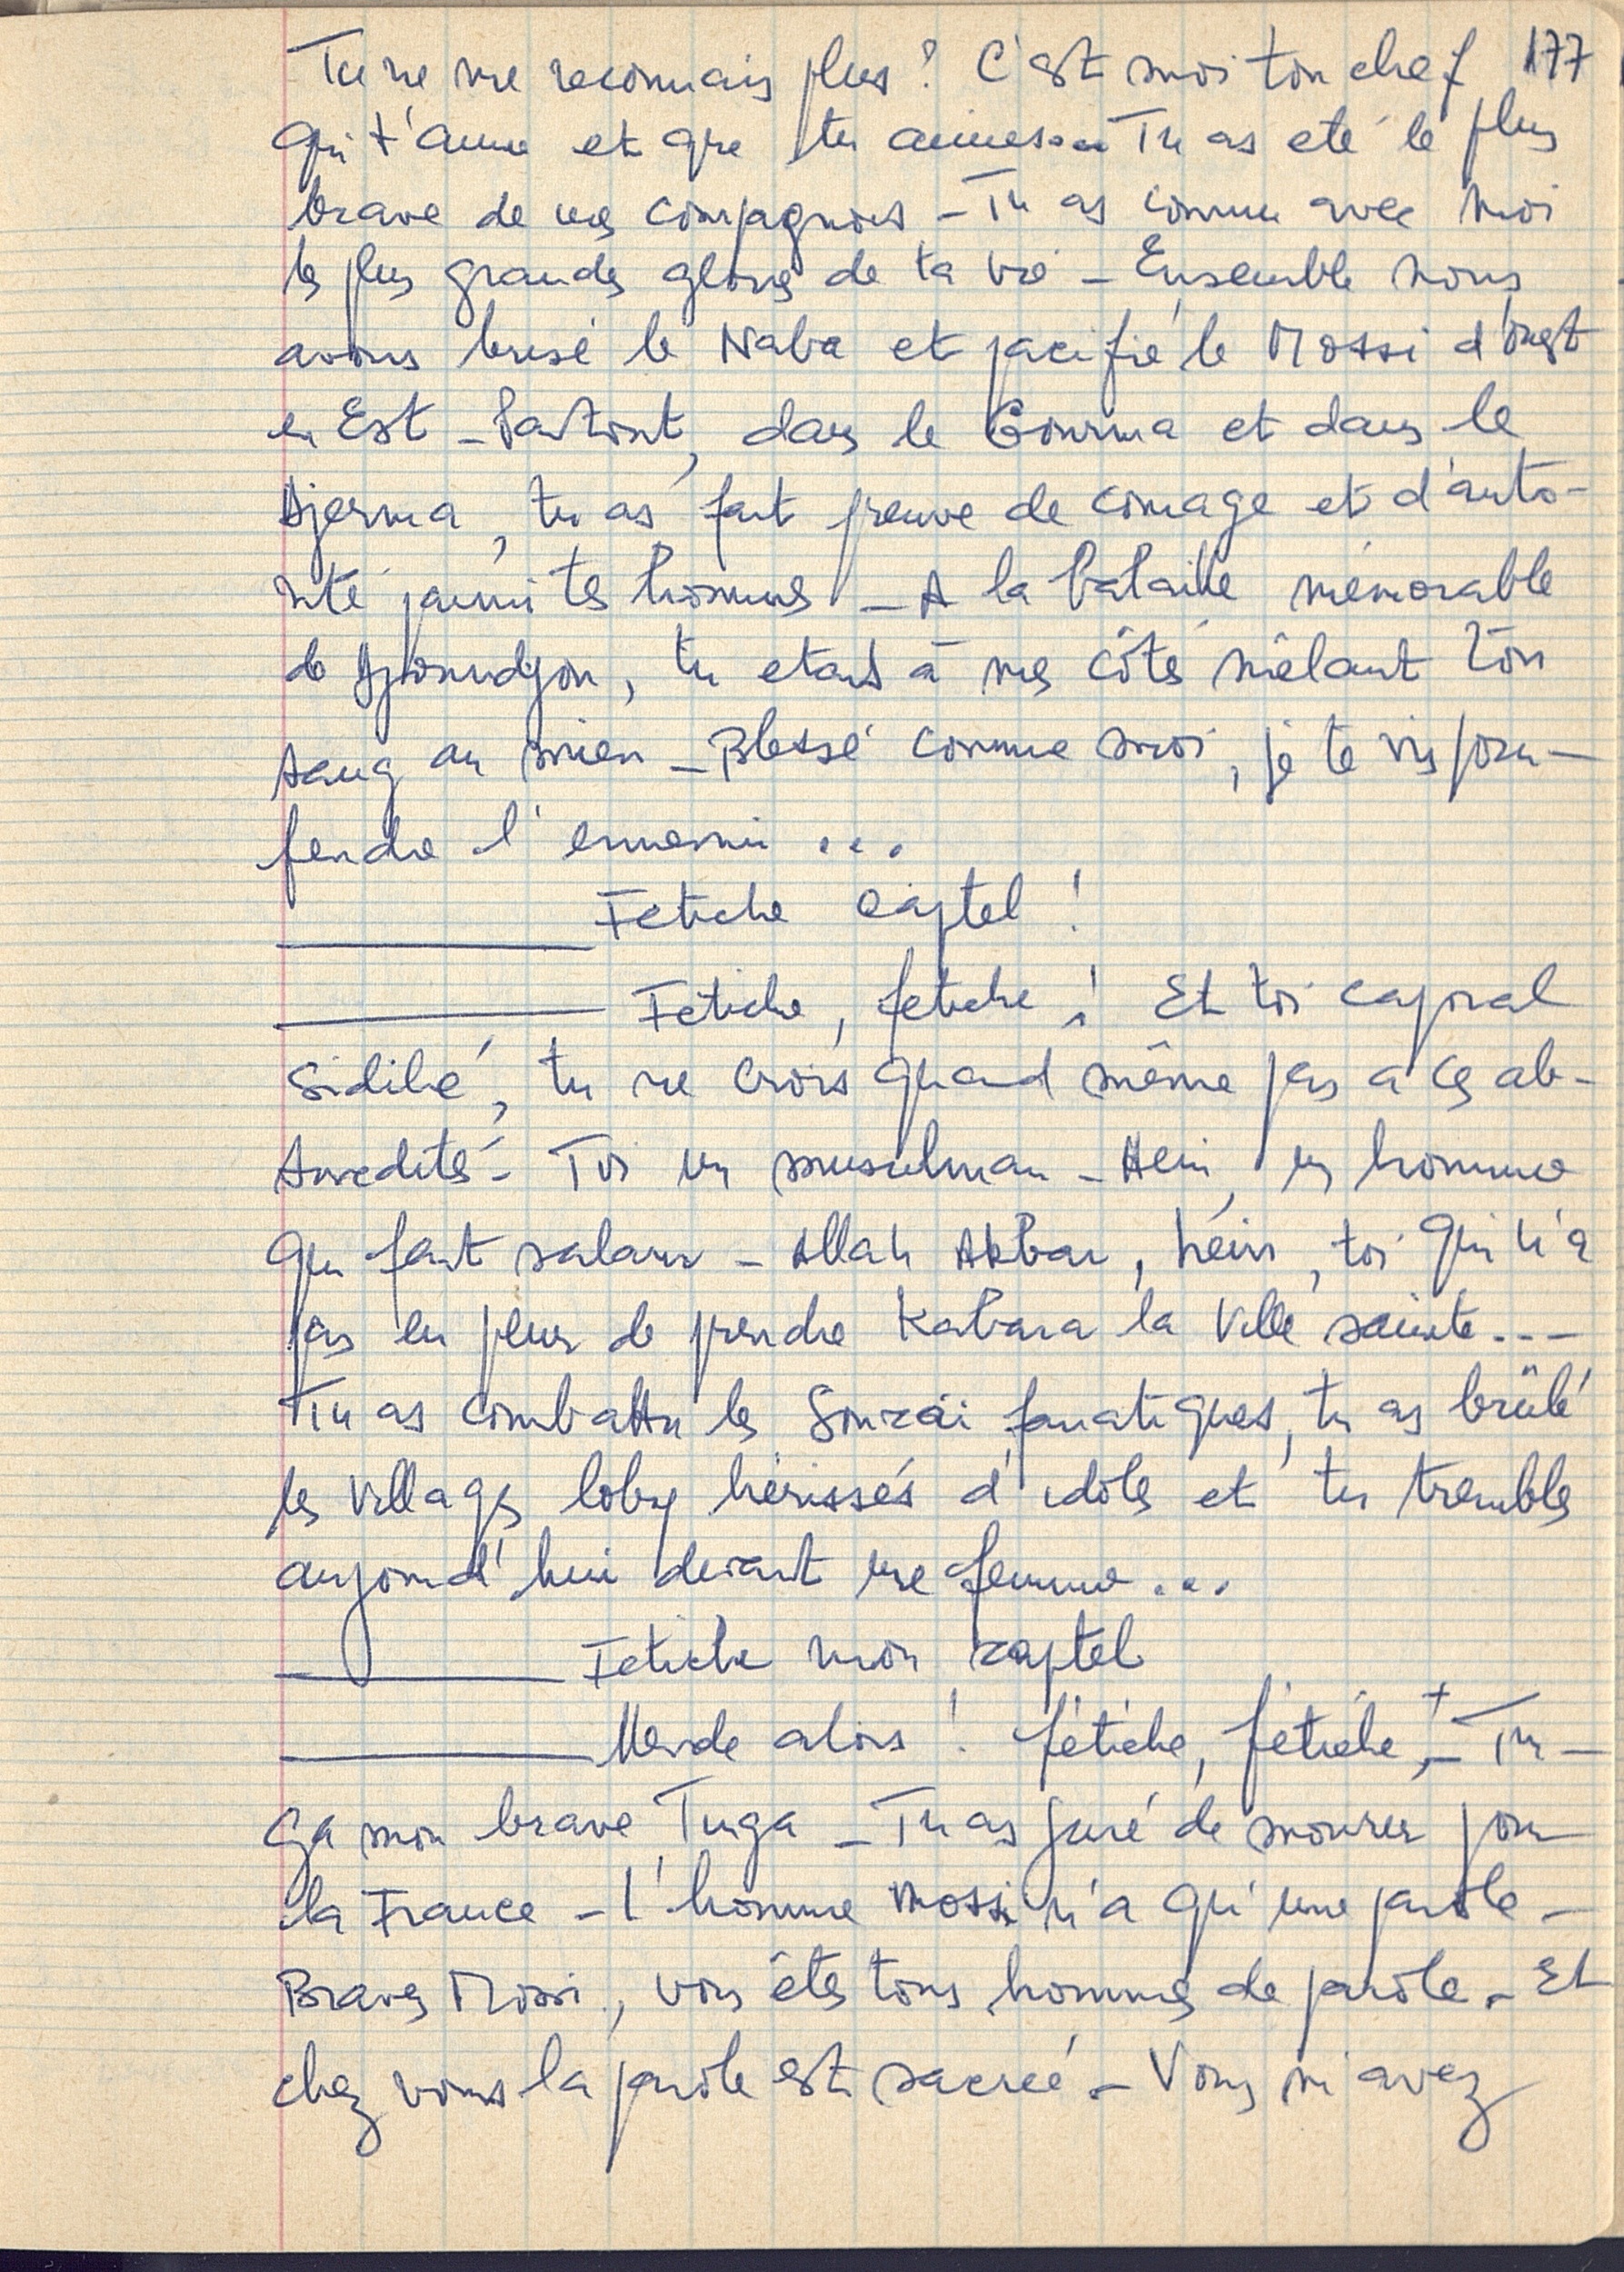 Tu ne me reconnais plus ? C'est moi ton chef 177
qui t'aime et que tu aimes... Tu as eté le plus
brave de mes compagnons - Tu as connu avec moi
les plus grandes gloires de ta vie - Ensemble nous
avons brisé le Naba et pacifié le Mossi d'ouest
en Est - Partout, dans le Gourma et dans le
Djerma, tu as fait preuve de courage et d'auto-
rité parmi tes hommes - A la bataille mémorable
de, tu etais à mes côtés mêlant ton
sang au mien - Blessé comme moi, je te vis pour-
fendre l'ennemi ...
Fetiche Captel !
Fetiche, fetiche ! Et toi caporal
Sidibé, tu ne crois quand même pas a ces ab-
surdités - Toi un musulman - Hein, un homme
qui fait salam - Allah Akbar, hein, toi qui n'a
pas eu peur de prendre Kabara la Ville sainte ...
Tu as combattu les Sonraï fanatiques, tu as brûlé
les villages loby hérissés d'idoles et tu trembles
aujourd'hui devant une femme ...
Fetiche mon captel
Merde alors ! fétiche, fétiche, - Tin-
ga mon brave Tinga - Tu as juré de mourir pour
la France - L'homme mossi n'a qu'une parole -
Braves Mossi, vous êtes tous hommes de parole - Et
chez vous la parole est sacrée - Vous m'avez